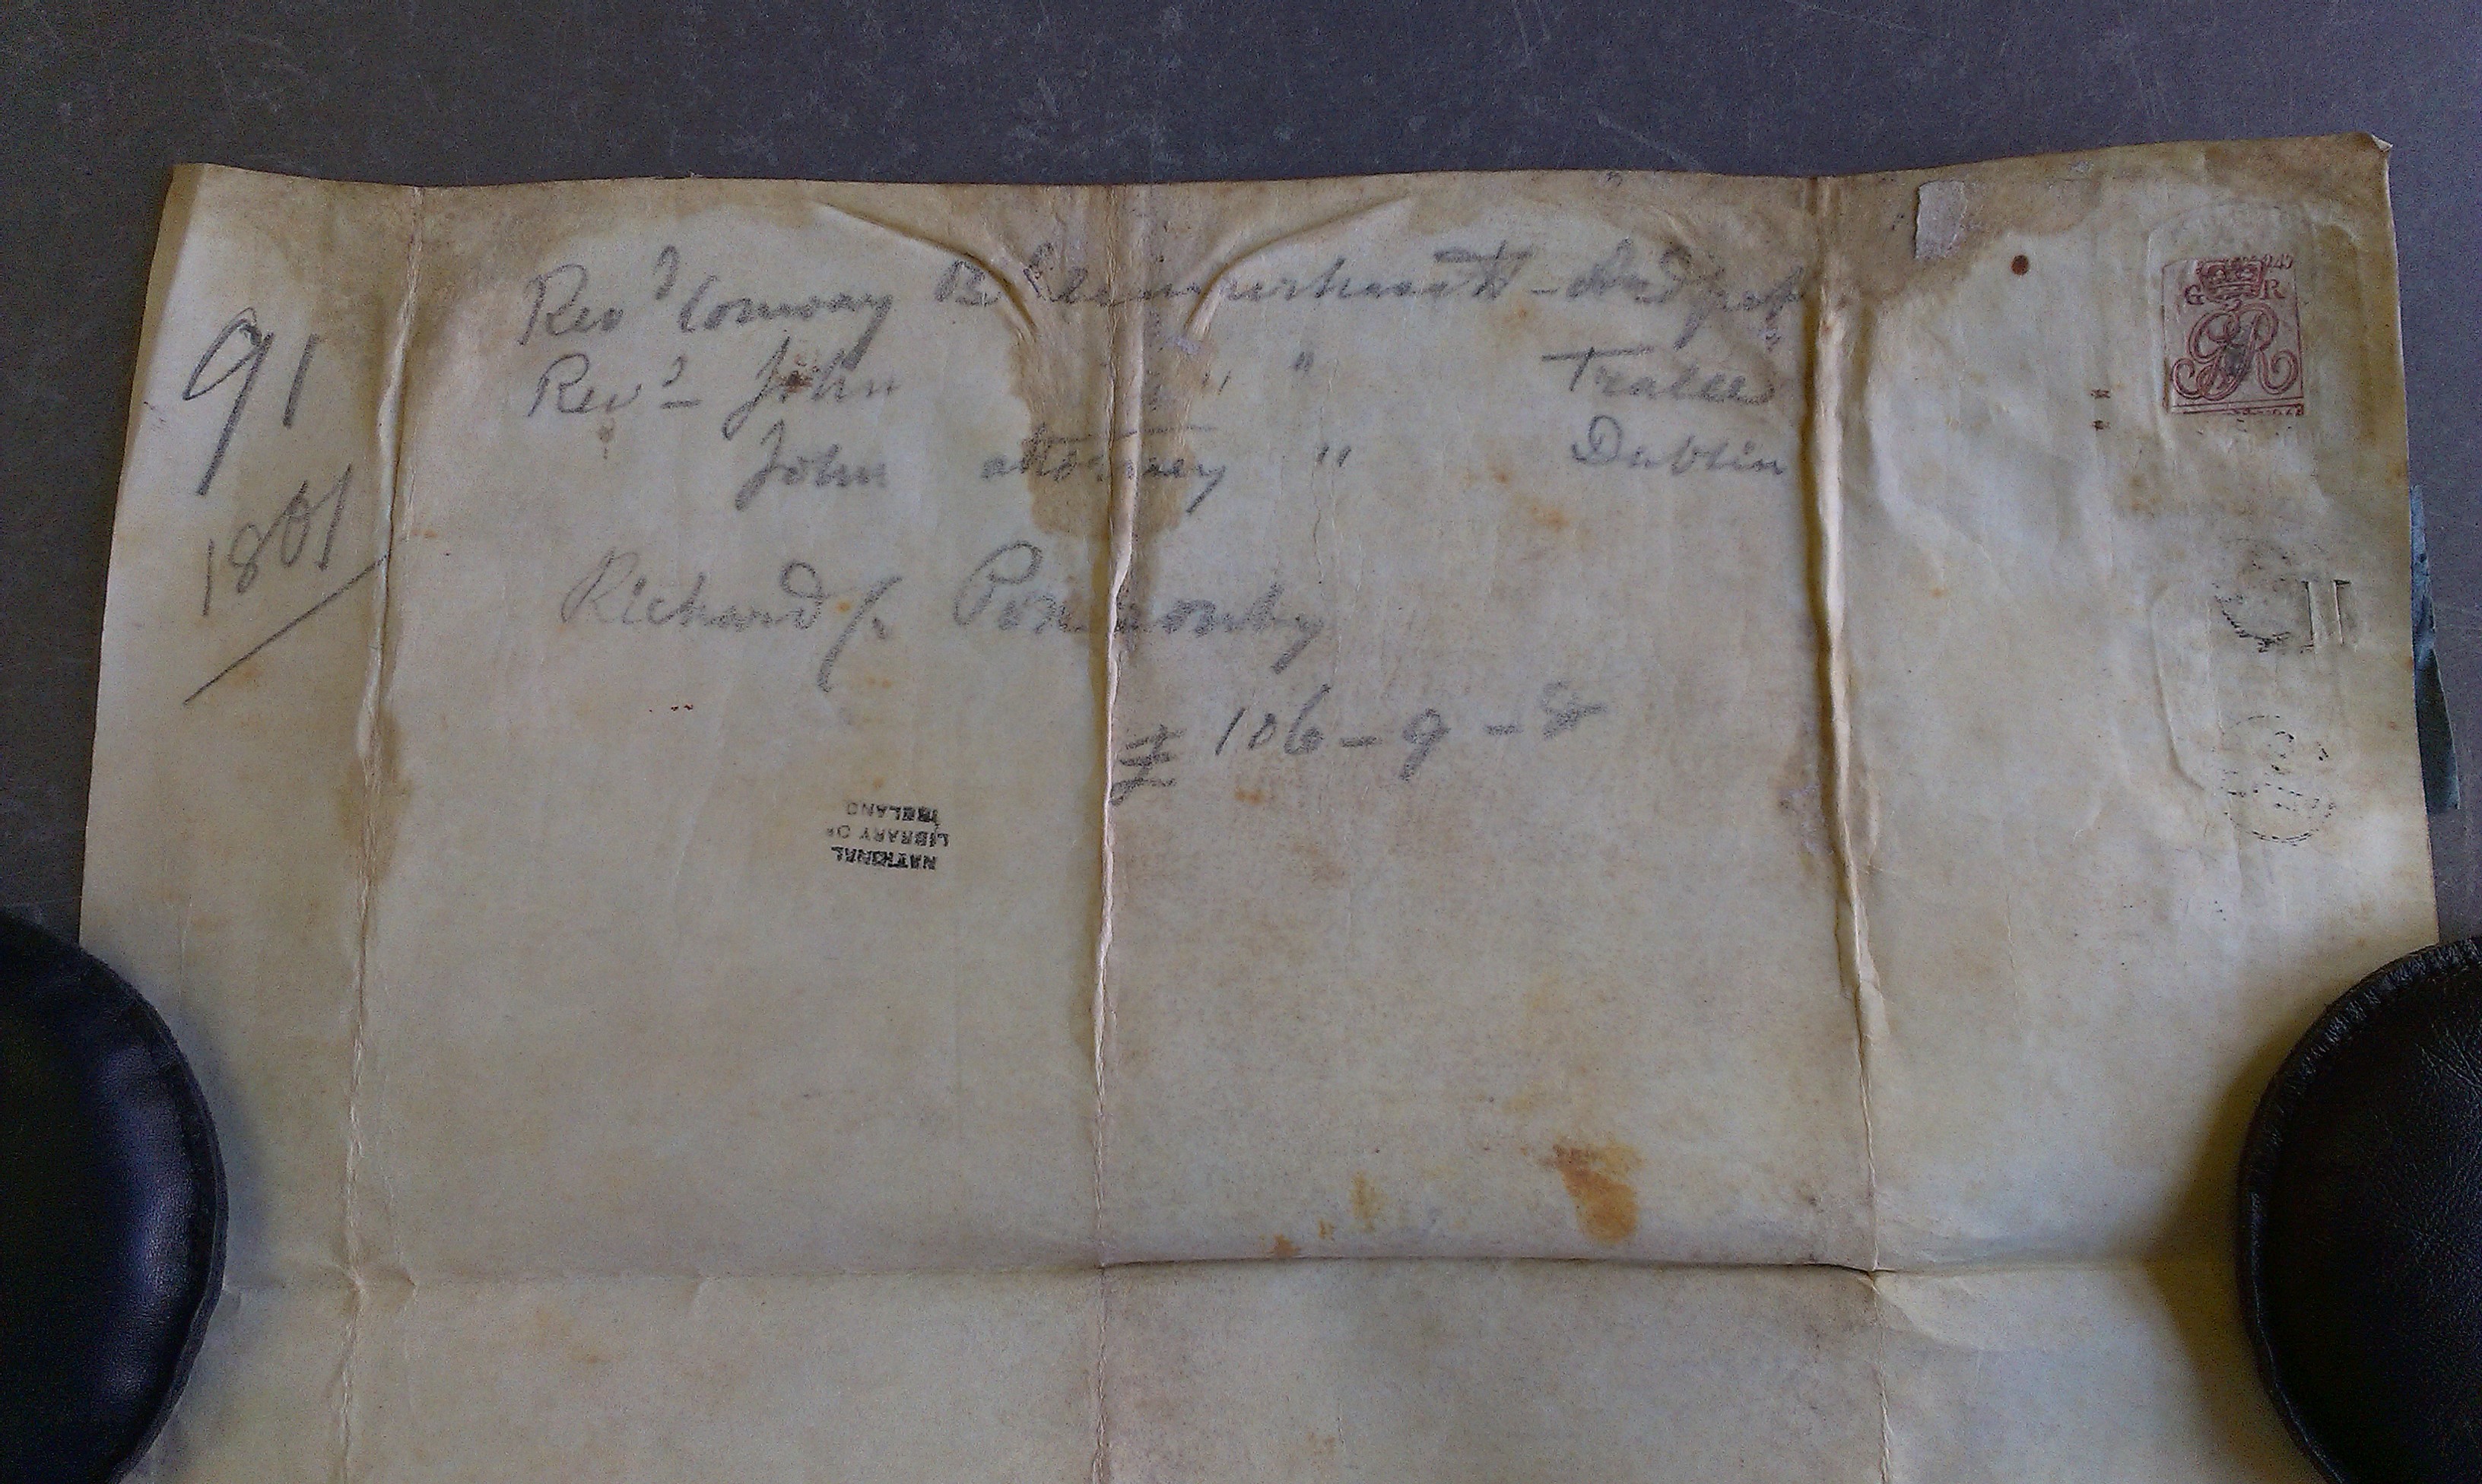 91
1801
Revd Conway B
Revd John " " Tralee
John attorney " Dublin
Richard Ponsonby
£ 106 - 9 - 8
NATIONAL
LIBRARY OF
IRELAND
G R
GR